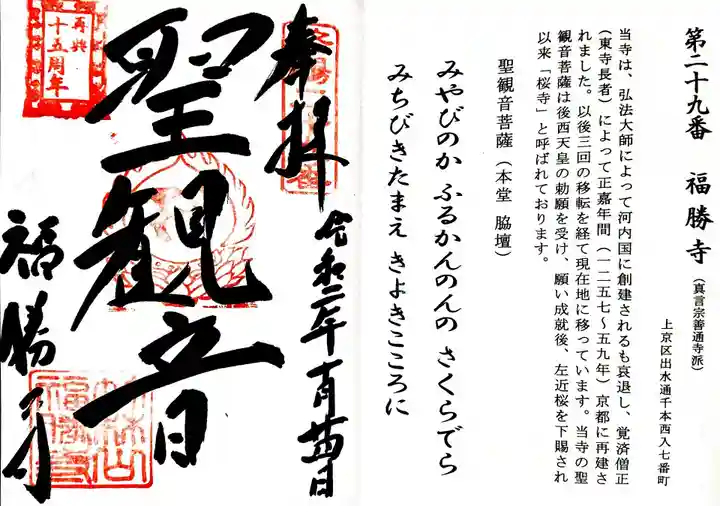 第二十九番 福勝寺（真言宗善通寺派）
上京区出水通千本西入七番町
当寺は、弘法大師によって河内国に創建されるも衰退し、覚済僧正
（東寺長者）によって正嘉年間（一二五七～五九年）京都に再建さ
れました。以後三回の移転を経て現在地に移っています。当寺の聖
観音菩薩は後西天皇の勅願を受け、願い成就後、左近桜を下賜され
以来「桜寺」と呼ばれております。
聖観音菩薩（本堂 脇壇）
みやびのか ふるかんのんの さくらでら
みちびきたまえ きよきこころに
奉拝
令和二年十一月廿四日
聖観音
福勝寺
再興
十五周年